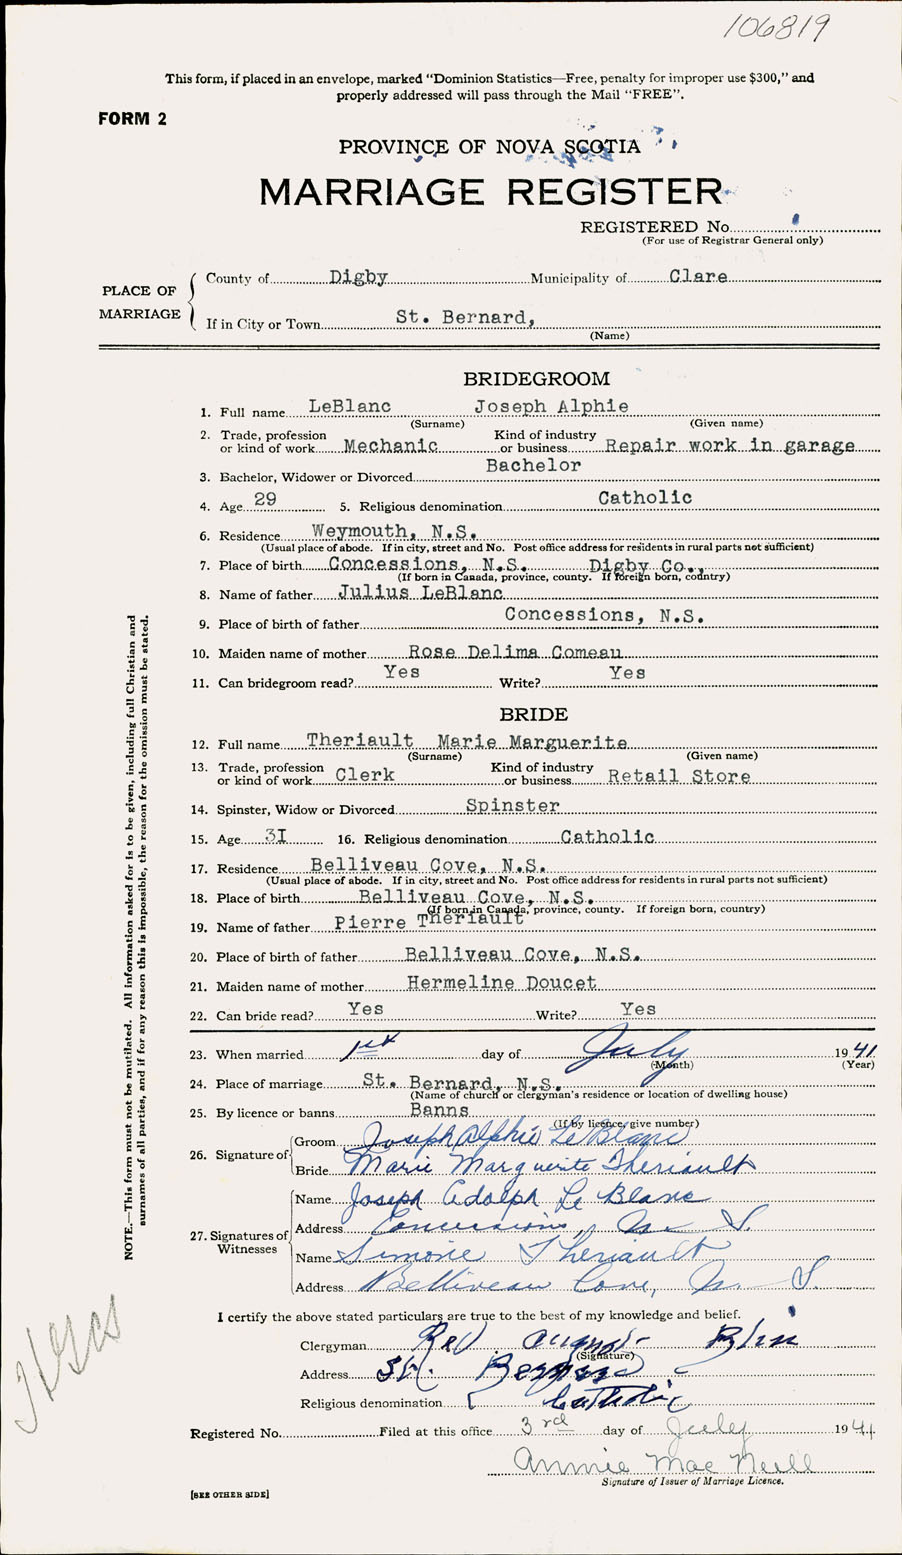 106819
This form, if placed in an envelope, marked “Dominion Statistics—Free, penalty for improper use $300,” and
properly addressed will pass through the Mail “FREE”.
FORM 2
PROVINCE OF NOVA SCOTIA
MARRIAGE REGISTER
REGISTERED No.
(For use of Registrar General only)
PLACE OF MARRIAGE
County of Digby Municipality of Clare
If in City or Town St. Bernard,
(Name)
BRIDEGROOM
1. Full name LeBlanc Joseph Alphie
(Surname) (Given name)
2. Trade, profession or kind of work Mechanic Kind of industry or business Repair work in garage
3. Bachelor, Widower or Divorced Bachelor
4. Age 29 5. Religious denomination Catholic
6. Residence Weymouth, N.S.
(Usual place of abode. If in city, street and No. Post office address for residents in rural parts not sufficient)
7. Place of birth Concessions, N.S. Digby Co.,
(If born in Canada, province, county. If foreign born, country)
8. Name of father Julius LeBlanc
9. Place of birth of father Concessions, N.S.
10. Maiden name of mother Rose Delima Comeau
11. Can bridegroom read? Yes Write? Yes
BRIDE
12. Full name Theriault Marie Marguerite
(Surname) (Given name)
13. Trade, profession or kind of work Clerk Kind of industry or business Retail Store
14. Spinster, Widow or Divorced Spinster
15. Age 3I 16. Religious denomination Catholic
17. Residence Belliveau Cove, N.S.
(Usual place of abode. If in city, street and No. Post office address for residents in rural parts not sufficient)
18. Place of birth Belliveau Cove, N.S.
(If born in Canada, province, county. If foreign born, country)
19. Name of father Pierre Theriault
20. Place of birth of father Belliveau Cove, N.S.
21. Maiden name of mother Hermeline Doucet
22. Can bride read? Yes Write? Yes
23. When married 1st day of July 1941
(Month) (Year)
24. Place of marriage St. Bernard, N.S.
(Name of church or clergyman's residence or location of dwelling house)
25. By licence or banns Banns
(If by licence, give number)
26. Signature of Groom Joseph Alphie LeBlanc
Bride Marie Marguerite Theriault
27. Signatures of Witnesses Name Joseph Adolph Le Blanc
Address Concessions, N. S.
Name Simone Theriault
Address Belliveau Cove, N. S.
I certify the above stated particulars are true to the best of my knowledge and belief.
Clergyman Rev Blin
(Signature)
Address St. Bernard
Religious denomination Catholic
Registered No. Filed at this office 3rd day of July 1941
Annie Mac Neill
Signature of Issuer of Marriage Licence.
[SEE OTHER SIDE]
NOTE.—This form must not be mutilated. All information asked for is to be given, including full Christian and
surnames of all parties, and if for any reason this is impossible, the reason for the omission must be stated.